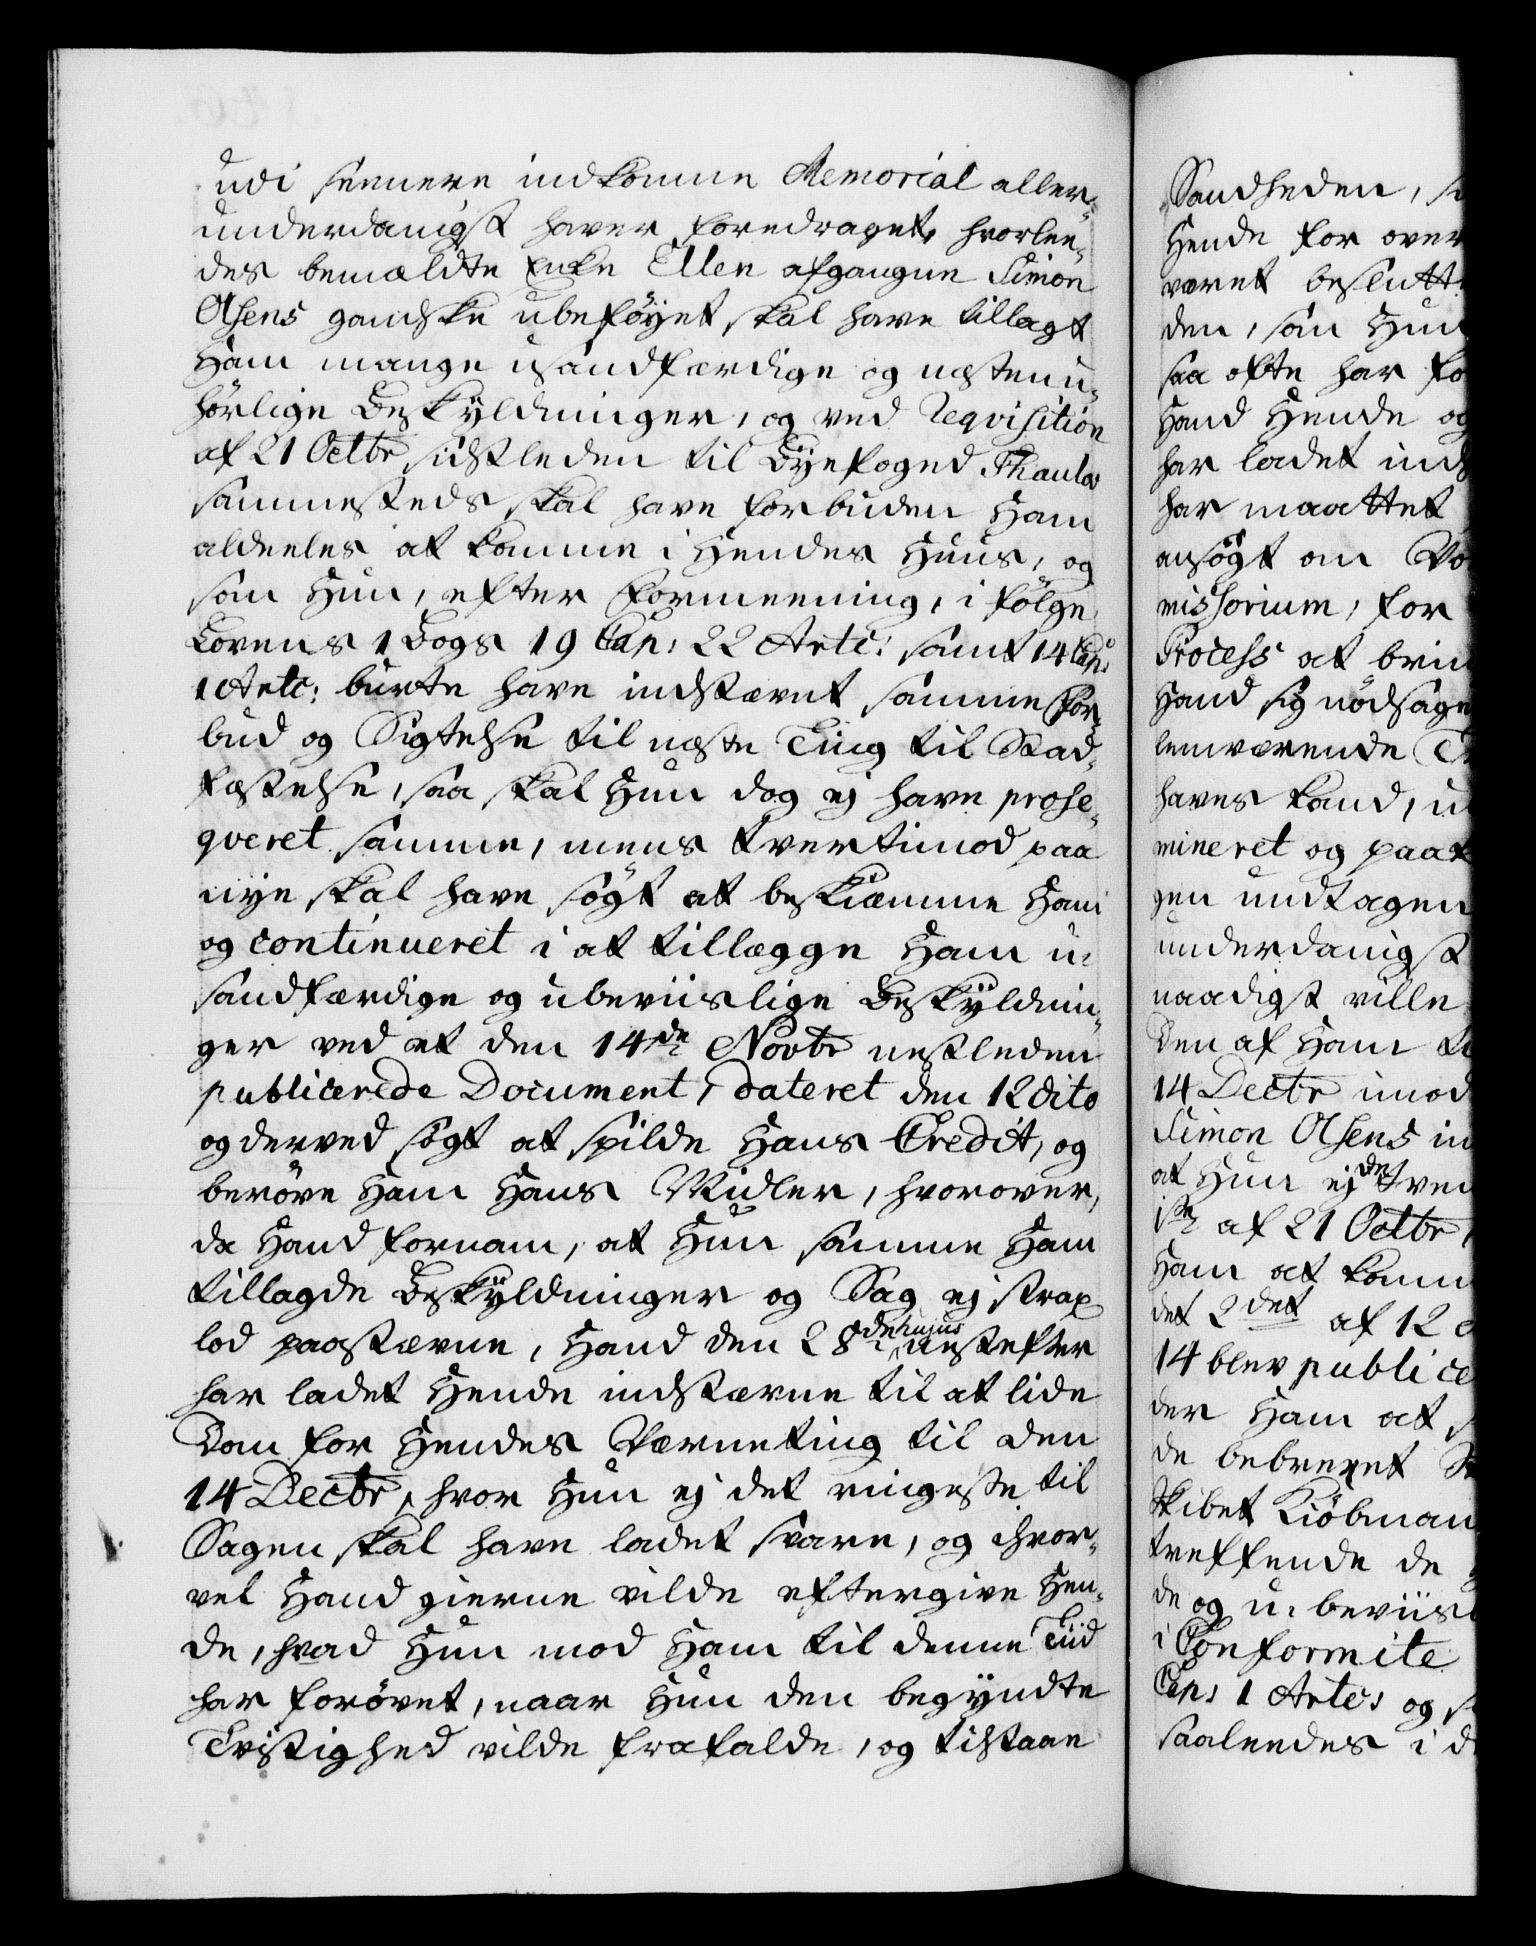 udi seenere indkomne Memorial aller-
underdanigst haver foredraget, hvorlee-
des bemældte Enke Ellen afgangne Simon
Olsens gandske ubeføyet skal have tillagt
Ham mange usandfærdige og næsten u-
hørlige Beskyldninger, og ved Reqvisition
af 21 Octbr sidstleden til Byefoged Thaulow
sammesteds skal have forbuden Ham
aldeeles at komme i Hendes Huus, og
som Hun, efter Formeening, i følge
Lovens 1 Bogs 19 Cap: 22 Artc: samt 14 Cap:
1 Artc: burte have indstævnt samme For-
bud og Sigtelse til næste Ting til Stad-
fæstelse, saa skal Hun dog ej have prose-
qveret samme, mens tvertimod paa
nye skal have søgt at beskiæmme Ham
og continueret i at tillægge Ham u-
sandfærdige og ubeviislige Beskyldnin-
ger ved et den 14de Novbr nestleden
publicerede Document, dateret den 12 dito
og derved søgt at spilde Hans Credit, og
berøve Ham Hans Midler, hvorover,
da Hand fornam, at Hun samme Ham
tillagde Beskyldninger og Sag ej strax
lod paastævne, Hand den 28de hujus nestefter
har ladet Hende indstævne til at lide
Dom for Hendes Værneting til den
14 Decbr, hvor Hun ej det ringeste til
Sagen skal have ladet svare, og ihvor-
vel Hand gierne vilde eftergive Hen-
de, hvad Hun mod Ham til denne Tiid
har forøvet, naar Hun den begyndte
Tvistighed vilde frafalde, og tilstaae
Sandheden,
Hende for over
været beslutt
den, som Hun
saa ofte har fo
Hand Hende og
har ladet ind
har maattet
ansøgt om
missorium, for
Process at brin
Hand sig nødsage
lenværende
haves kand, u
mineret og paa
gen undtagen
underdanigst
naadigst ville
den af Ham
14 Decbr imod
Simon Olsens in
at Hun ej det ved
1ste af 21 Octbr
Ham at komm
det 2det af 12
14 blev publice
der Ham at
de bebrevet
Skibet Kiöbman
treffende de
de og u-beviisl
i Conformite
Cap: 1 Artc: og
saaleedes i d